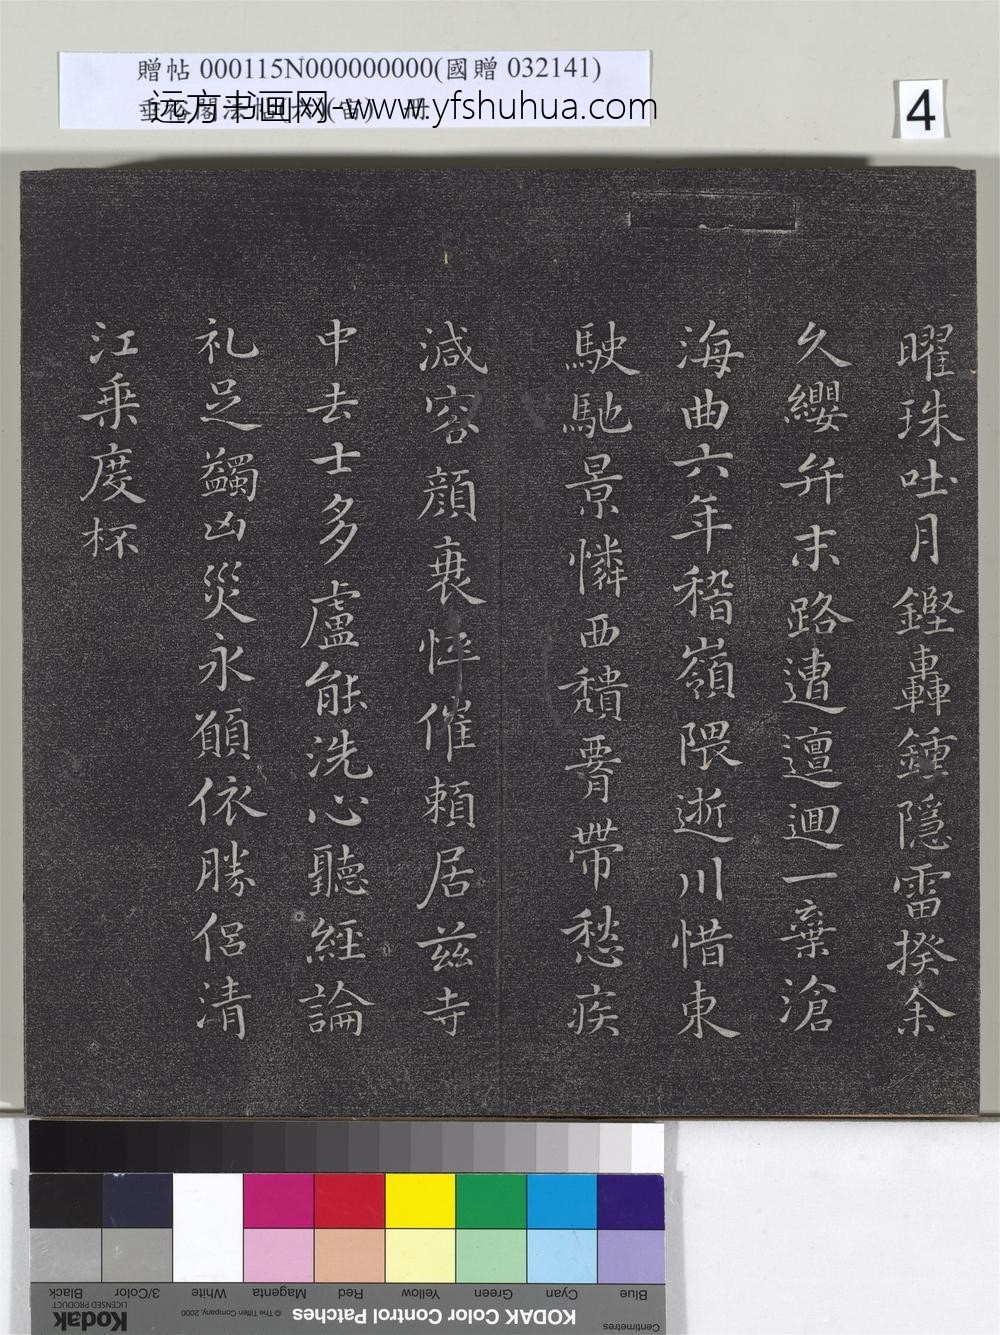 贈帖 000115N000000000(國贈 032141)
远方书画网-www.yfshuhua.com
4
曜珠吐月鏗轟鍾隱雷揆余
久纓弁末路遭邅迴一棄滄
海曲六年稽嶺隈逝川惜東
駛馳景憐西穨腰帶愁疾
減容顔衰悴催賴居茲寺
中去士多盧能洗心聽經論
礼足蠲凶災永願依勝侶清
江乘度杯
Black
3/Color
White
Magenta
Red
Yellow
Green
Cyan
Blue
Kodak
LICENSED PRODUCT
© The Tiffen Company, 2000
KODAK Color Control Patches
Centimetres